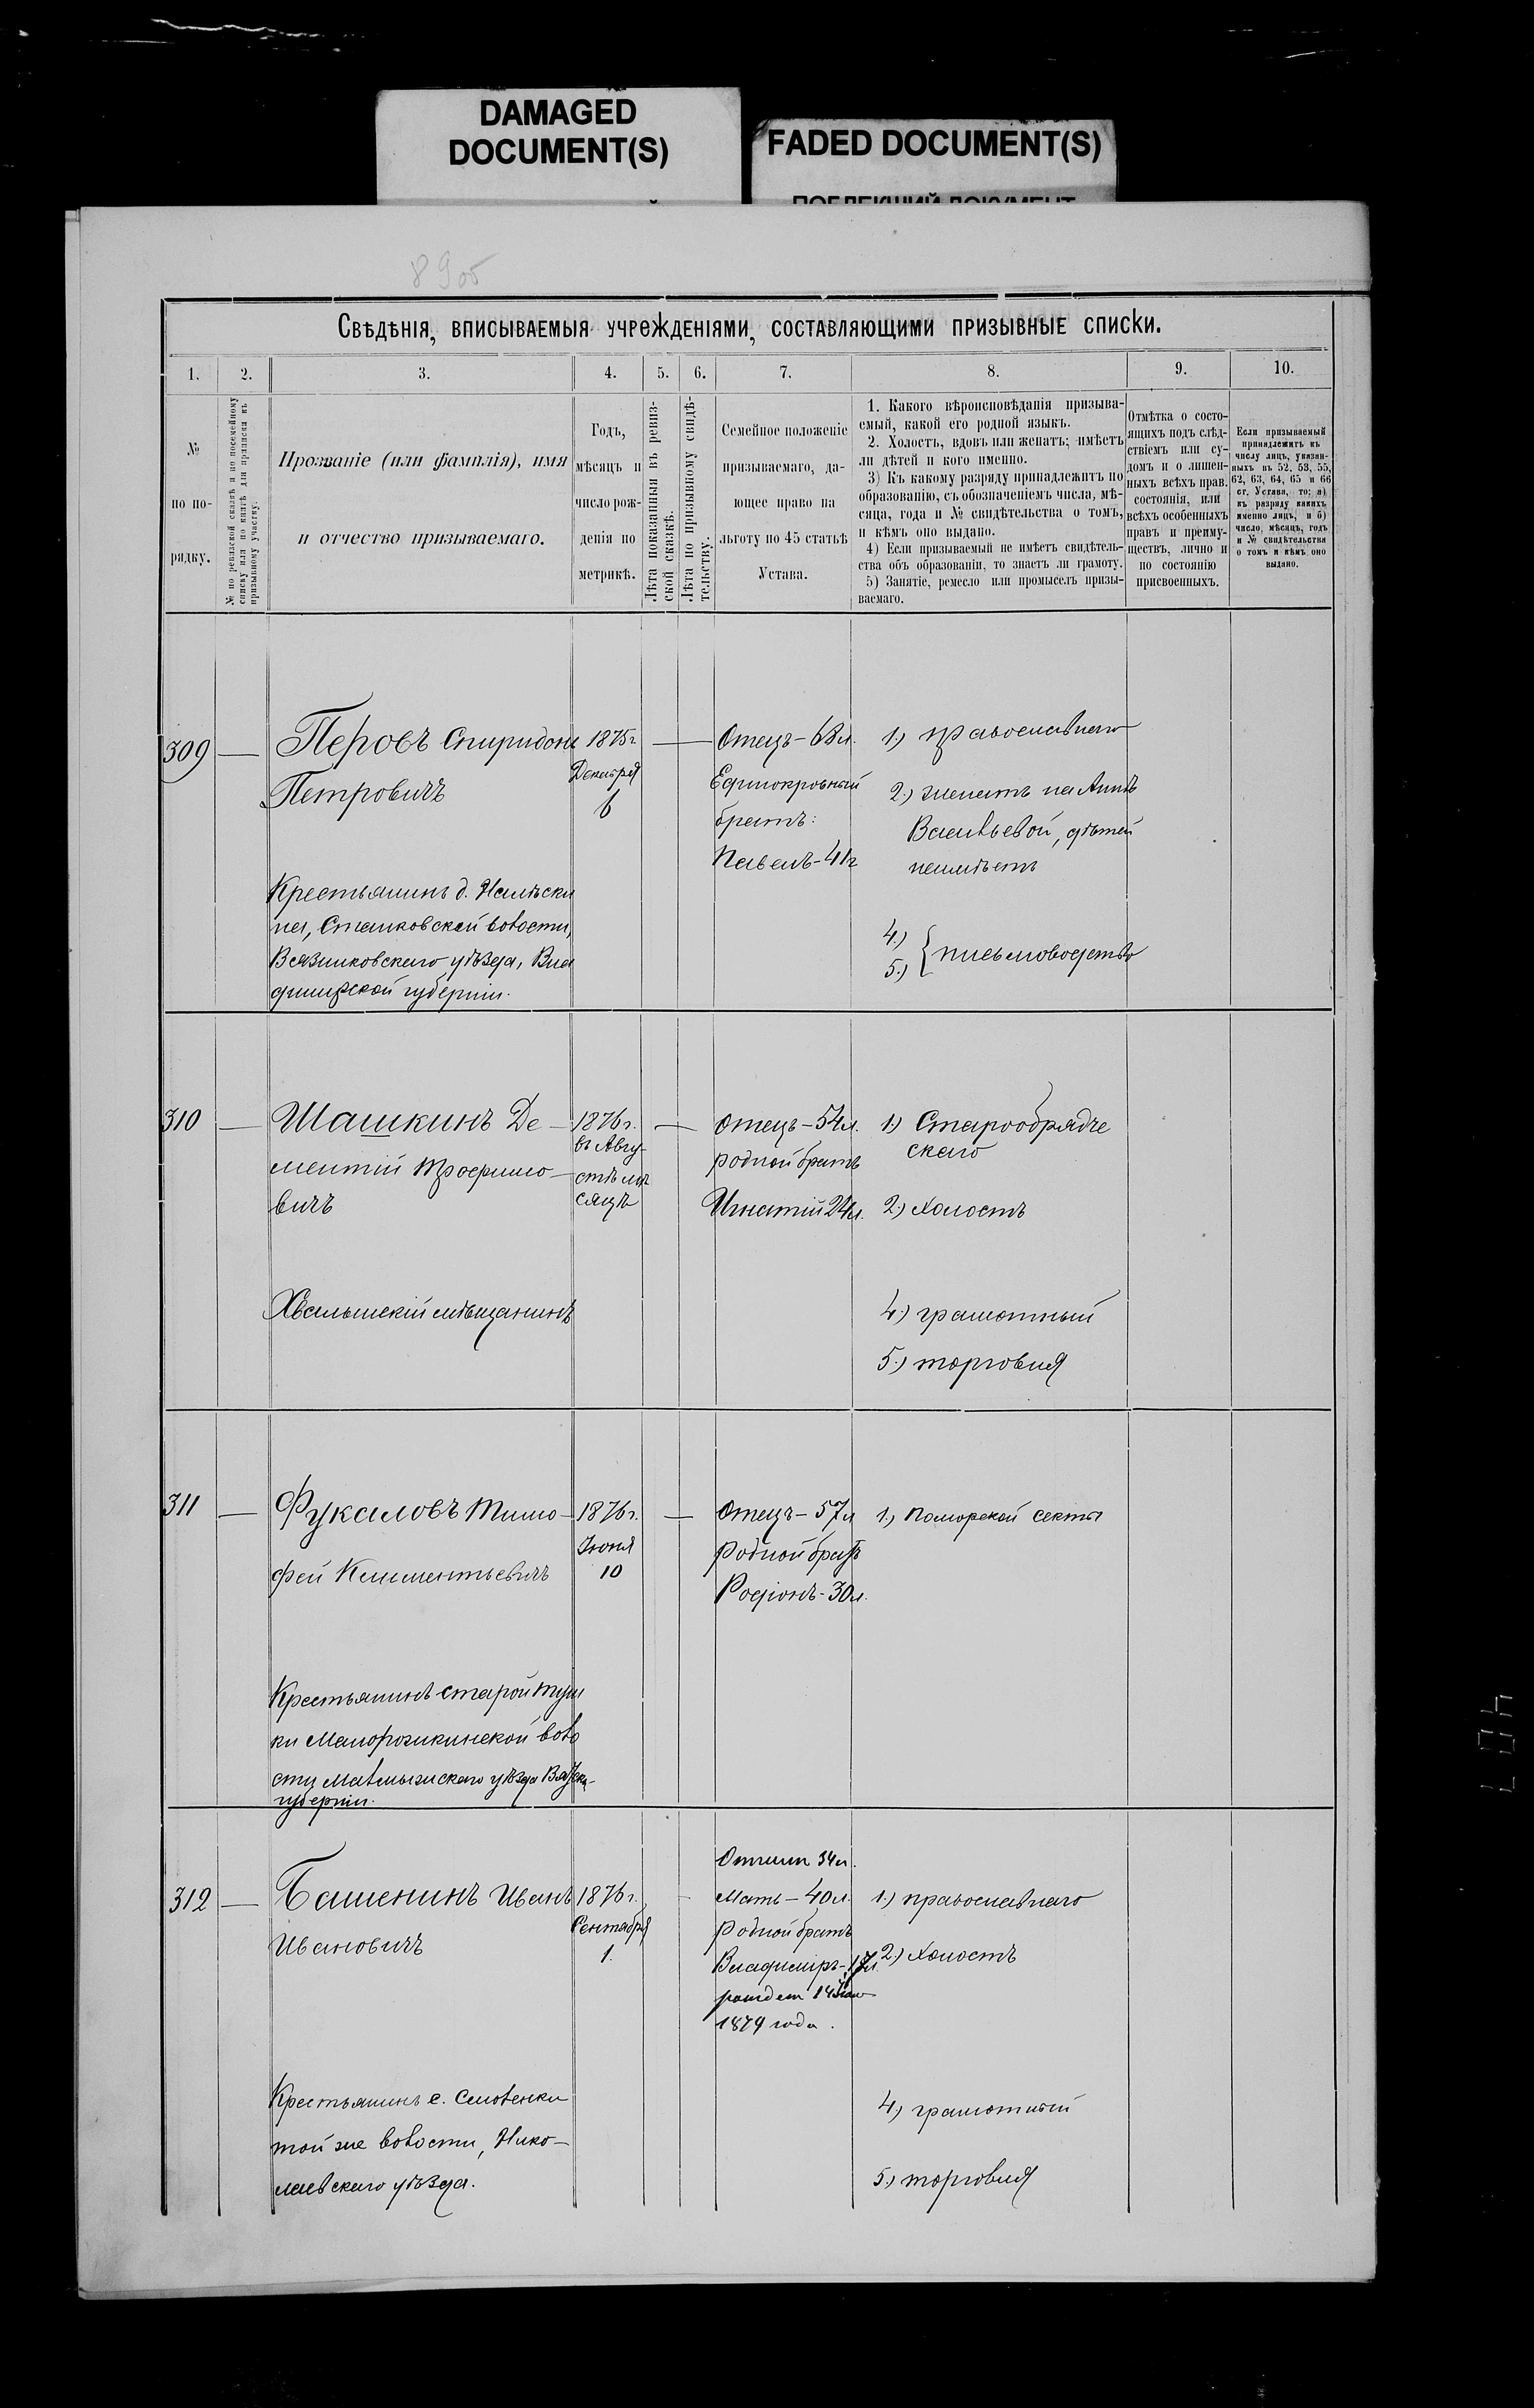 DAMAGED
DOCUMENT(S)
FADED DOCUMENT(S)
ПОБЛЕКШИЙ ДОКУМЕНТ
89об
Свѣдѣнія, вписываемыя учрежденіями, составляющими призывные списки.
1. 2. 3. 4. 5. 6. 7. 8. 9. 10.
№
по по-
рядку.
№ по ревизской сказкѣ и по посемейному
списку или по книгѣ для приписки къ
призывному участку.
Прозваніе (или фамилія), имя
и отчество призываемаго.
Годъ,
мѣсяцъ и
число рож-
денія по
метрикѣ.
Лѣта показанныя въ ревиз-
ской сказкѣ.
Лѣта по призывному свидѣ-
тельству.
Семейное положеніе
призываемаго, да-
ющее право на
льготу по 45 статьѣ
Устава.
1. Какого вѣроисповѣданія призыва-
емый, какой его родной языкъ.
2. Холостъ, вдовъ или женатъ; имѣетъ
ли дѣтей и кого именно.
3) Къ какому разряду принадлежитъ по
образованію, съ обозначеніемъ числа, мѣ-
сяца, года и № свидѣтельства о томъ,
и кѣмъ оно выдано.
4) Если призываемый не имѣетъ свидѣтель-
ства объ образованіи, то знаетъ ли грамоту.
5) Занятіе, ремесло или промыселъ призы-
ваемаго.
Отмѣтка о состо-
ящихъ подъ слѣд-
ствіемъ или су-
домъ и о лишен-
ныхъ всѣхъ прав.
состоянія, или
всѣхъ особенныхъ
правъ и преиму-
ществъ, лично и
по состоянію
присвоенныхъ.
Если призываемый
принадлежитъ къ
числу лицъ, указан-
ныхъ въ 52, 53, 55,
62, 63, 64, 65 и 66
ст. Устава, то: а)
къ разряду какихъ
именно лицъ, и б)
число, мѣсяцъ, годъ
и № свидѣтельства
о томъ и кѣмъ оно
выдано.
309 — Перовъ Спиридонъ
Петровичъ
Крестьянинъ д.
на, Станковской волости,
Вязниковскаго уѣзда, Вла
димирской губерніи.
1875г
Декабря
6
Отецъ – 63л.
Единокровный
братъ:
Павелъ – 41г
1) православнаго
2) женатъ на Аннѣ
Васильевой, дѣтей
неимѣетъ
4)
5) { письмоводство
310 — Шашкинъ Де-
ментій Трофимо-
вичъ
Хвалынскій мѣщанинъ
1876г.
въ Авгу-
стѣ мѣ
сяцѣ
Отецъ – 54л.
родной братъ
Игнатій 24л.
1) Старообрядче
скаго
2) Холостъ
4) грамотный
5) торговля
311 — Фукаловъ Тимо-
фей Клементьевичъ
Крестьянинъ старой Туш
ки Малорожкинской воло
сти Малмыжскаго уѣзда Вятск.
губерніи.
1876г.
Іюня
10
Отецъ – 57л
Родной братъ
Родіонъ – 30л.
1) Поморской секты
312 — Башенинъ Иванъ
Ивановичъ
Крестьянинъ с. Смоленки
той же волости, Нико-
лаевскаго уѣзда.
1876г.
Сентября
1.
Отчим 34л.
Мать – 40л.
Родной братъ
Владиміръ – 17л.
рожден 14
1879 года.
1) православнаго
2) Холостъ
4) грамотный
5) торговля
407